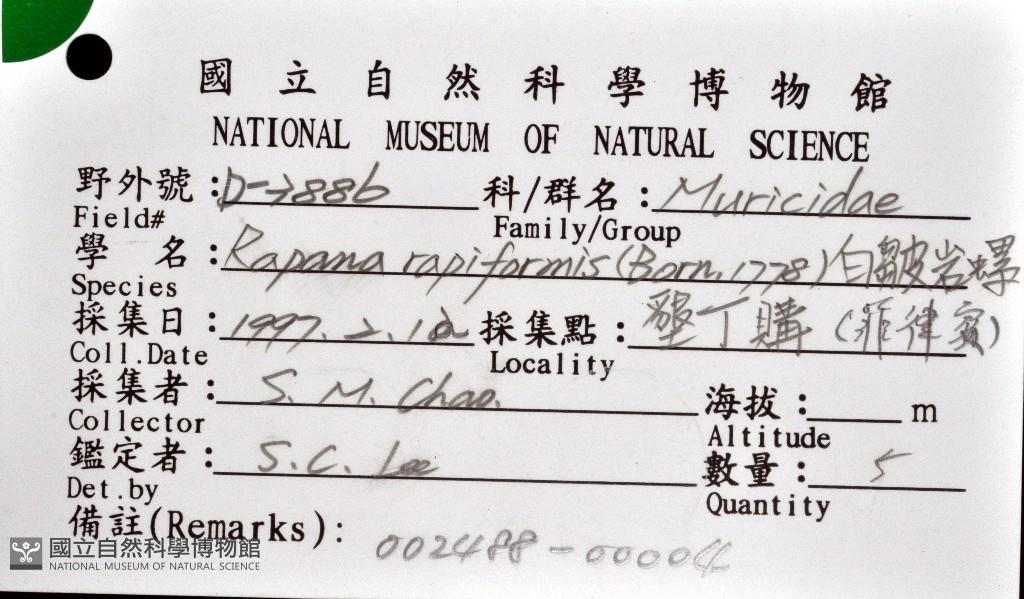 國立自然科學博物館
NATIONAL MUSEUM OF NATURAL SCIENCE
野外號：D-7886 科/群名：Muricidae
Field# Family/Group
學 名：Rapana rapiformis (Born, 1778) 白皺岩螺
Species
採集日：1997.2.12 採集點：墾丁購(菲律賓)
Coll.Date Locality
採集者：S. M. Chao. 海拔： m
Collector Altitude
鑑定者：S.C. Lee 數量：5
Det.by Quantity
備註(Remarks): 002488-00004
國立自然科學博物館
NATIONAL MUSEUM OF NATURAL SCIENCE